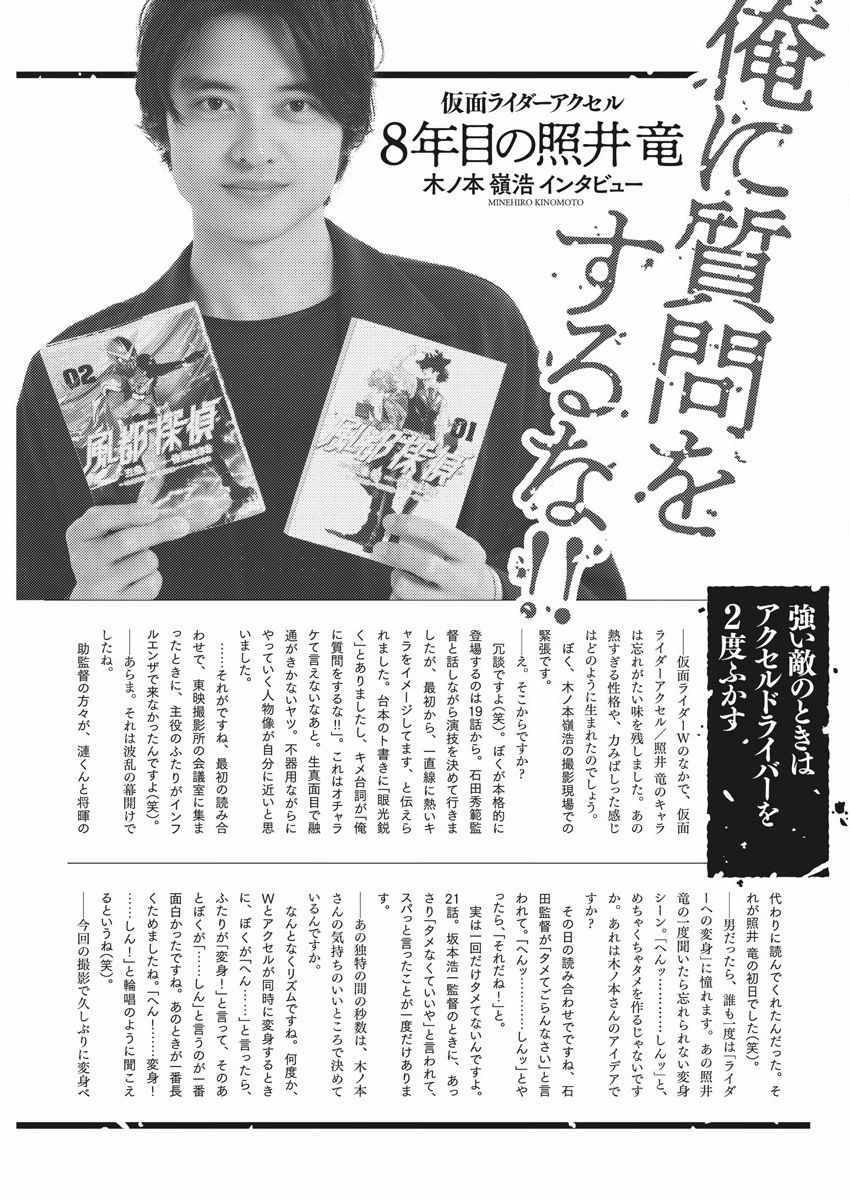 俺に質問を
するな!!
仮面ライダーアクセル
8年目の照井 竜
木ノ本 嶺浩 インタビュー
MINEHIRO KINOMOTO
02
風都探偵
01
風都探偵
強い敵のときは
アクセルドライバーを
2度ふかす
――仮面ライダーWのなかで、仮面
ライダーアクセル/照井 竜のキャラ
は忘れがたい味を残しました。あの
熱すぎる性格や、力みばしった感じ
はどのように生まれたのでしょう。
ぼく、木ノ本嶺浩の撮影現場での
緊張です。
――え。そこからですか?
冗談ですよ(笑)。ぼくが本格的に
登場するのは19話から。石田秀範監
督と話しながら演技を決めて行きま
したが、最初から、一直線に熱いキ
ャラをイメージしてます、と伝えら
れました。台本のト書きに「眼光鋭
く」とありましたし、キメ台詞が「俺
に質問をするな!!」。これはオチャラ
ケて言えないなあと。生真面目で融
通がきかないヤツ。不器用ながらに
やっていく人物像が自分に近いと思
いました。
……それがですね、最初の読み合
わせで、東映撮影所の会議室に集ま
ったときに、主役のふたりがインフ
ルエンザで来なかったんですよ(笑)。
――あらま。それは波乱の幕開けで
したね。
助監督の方々が、漣くんと将暉の
代わりに読んでくれたんだった。そ
れが照井 竜の初日でした(笑)。
――男だったら、誰も一度は「ライダ
ーへの変身」に憧れます。あの照井
竜の一度聞いたら忘れられない変身
シーン。「へんッ…………しんッ」と、
めちゃくちゃタメを作るじゃないです
か。あれは木ノ本さんのアイデアで
すか?
その日の読み合わせでですね、石
田監督が「タメてごらんなさい」と言
われて。「へんッ…………しんッ」とや
ったら、「それだね!」と。
実は一回だけタメてないんですよ。
21話。坂本浩一監督のときに、あっ
さり「タメなくていいや」と言われて、
スパっと言ったことが一度だけありま
す。
――あの独特の間の秒数は、木ノ本
さんの気持ちのいいところで決めて
いるんですか。
なんとなくリズムですね。何度か、
Wとアクセルが同時に変身するとき
に、ぼくが「へん……」と言ったら、
ふたりが「変身!」と言って、そのあ
とぼくが「……しん」と言うのが一番
面白かったですね。あのときが一番長
くためましたね。「へん!………変身!
……しん!」と輪唱のように聞こえ
るというね(笑)。
――今回の撮影で久しぶりに変身ベ